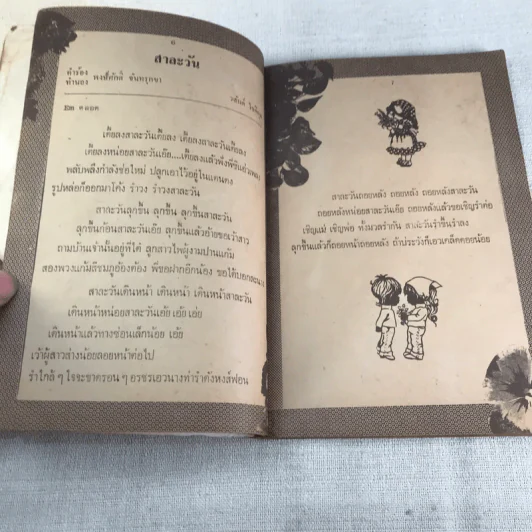 ๘
สาละวัน
คำร้อง
ทำนอง พงษ์ศักดิ์ จันทรุกขา
Em ตลอด
เตี้ยลงสาละวันเตี้ยลง เตี้ยลงสาละวันเตี้ยลง
เตี้ยลงหน่อยสาละวันเอ๊ย....เตี้ยลงแล้วพึ่งพี่ชิน
พลับพลึงกำลังช่อใหม่ ปลูกเอาไว้อยู่ในแดนดง
รูปหล่อก็ออกมาโค้ง รำวง รำวงสาละวัน
สาละวันลุกขึ้น ลุกขึ้น ลุกขึ้นสาละวัน
ลุกขึ้นก้อนสาละวันเอ๊ย ลุกขึ้นแล้วย้ายขอเว้าสาว
ถามบ้านเจ้านั้นอยู่ที่ใด๋ ลูกสาวไผผู้งามปานแก้ม
สองพวงแก้ม อ้องต้อง พี่ขอฝากอีกน้อง ขอได้บอก
สาละวันเดินหน้า เดินหน้า เดินหน้าสาละวัน
เดินหน้าหน่อยสาละวันเอ้ย เอ้ย เอ่ย
เดินหน้าแล้วทางซ่อนเล็กน้อย เอ้ย
เว้าผู้สาวส่างน้อยลอยหน้าต่อไป
รำใกล้ ๆ ใจจะขาดรอน ๆ อรชรเอวนางท่ารำดังหงส์ฟ้อน
สาละวันถอยหลัง ถอยหลัง ถอยหลังสาละวัน
ถอยหลังหน่อยสาละวันเอ๊ย ถอยหลังแล้วขอเชิญรำต่อ
เชิญแม่ เชิญพ่อ ทั้งมวลรำกัน สาละวันรำขึ้นรำลง
ลุกขึ้นแล้วก็ถอยหน้าถอยหลัง ถ้าประวังก็เอวเคล็ดคอยน้อย